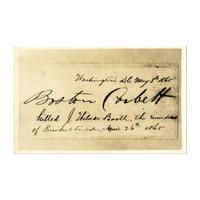 Washington D.C. May 8th 1865
Boston Corbett
killed J. Wilkes Booth, the murderer
of President Lincoln, April 26th 1865